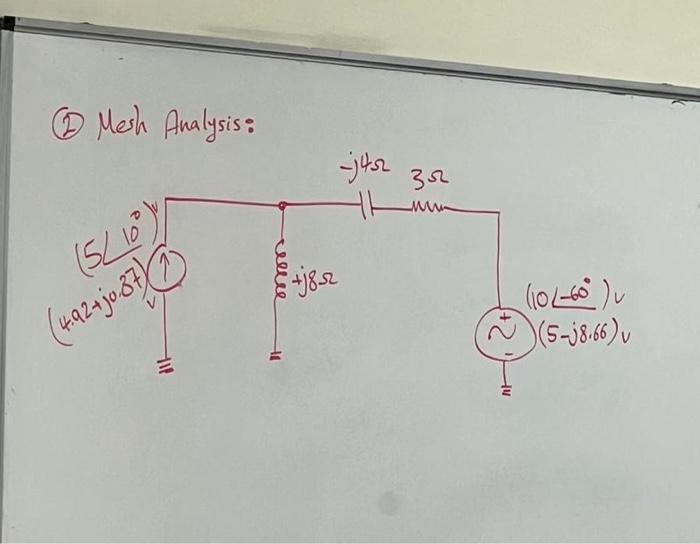 ② Mesh Analysis:
-j4Ω
3Ω
(5∠10°)v
(4.92+j0.87)v
+j8Ω
(10∠-60°)v
+
(5-j8.66)v
-